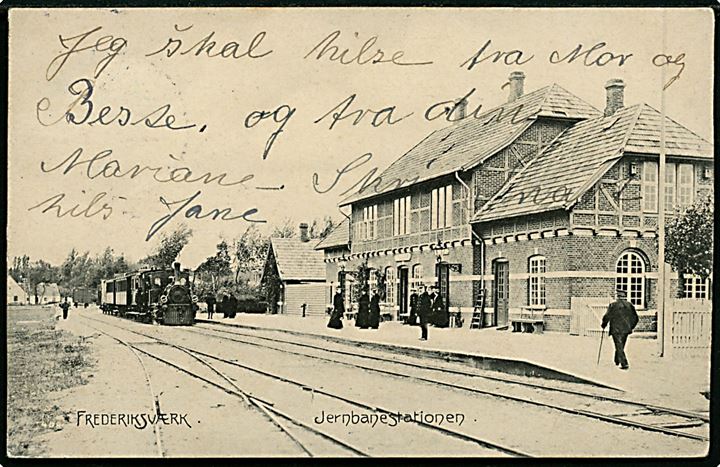 Jeg skal hilse fra Mor og
Besse, og fra din
Mariane. Skriv
hils Jane
FREDERIKSVÆRK. Jernbanestationen.